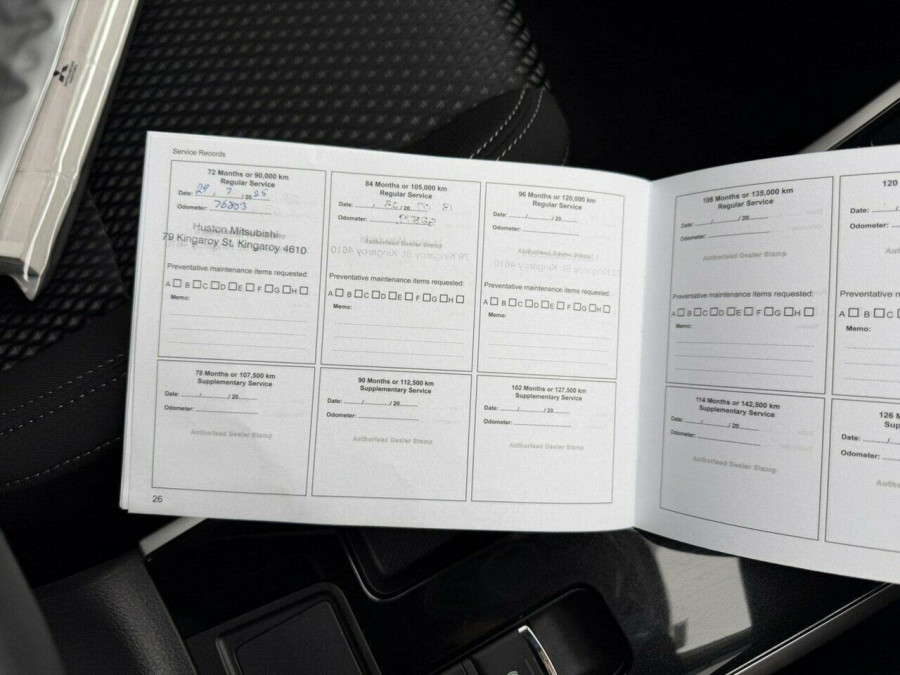 Service Records
72 Months or 90,000 km
Regular Service
Date: 29 / 7 / 20 25
Odometer: 76303
Huston Mitsubishi
79 Kingaroy St, Kingaroy 4610
Preventative maintenance items requested:
A B C D E F G H
Memo:
84 Months or 105,000 km
Regular Service
Date: / / 20
Odometer:
Authorised Dealer Stamp
Preventative maintenance items requested:
A B C D E F G H
Memo:
96 Months or 120,000 km
Regular Service
Date: / / 20
Odometer:
Authorised Dealer Stamp
Preventative maintenance items requested:
A B C D E F G H
Memo:
78 Months or 107,500 km
Supplementary Service
Date: / / 20
Odometer:
Authorised Dealer Stamp
90 Months or 112,500 km
Supplementary Service
Date: / / 20
Odometer:
Authorised Dealer Stamp
102 Months or 127,500 km
Supplementary Service
Date: / / 20
Odometer:
Authorised Dealer Stamp
26
108 Months or 135,000 km
Regular Service
Date: / / 20
Odometer:
Authorised Dealer Stamp
Preventative maintenance items requested:
A B C D E F G H
Memo:
114 Months or 142,500 km
Supplementary Service
Date: / / 20
Odometer:
Authorised Dealer Stamp
120
Date: /
Odometer:
Preventative m
A B C
Memo:
126 M
Sup
Date: /
Odometer: